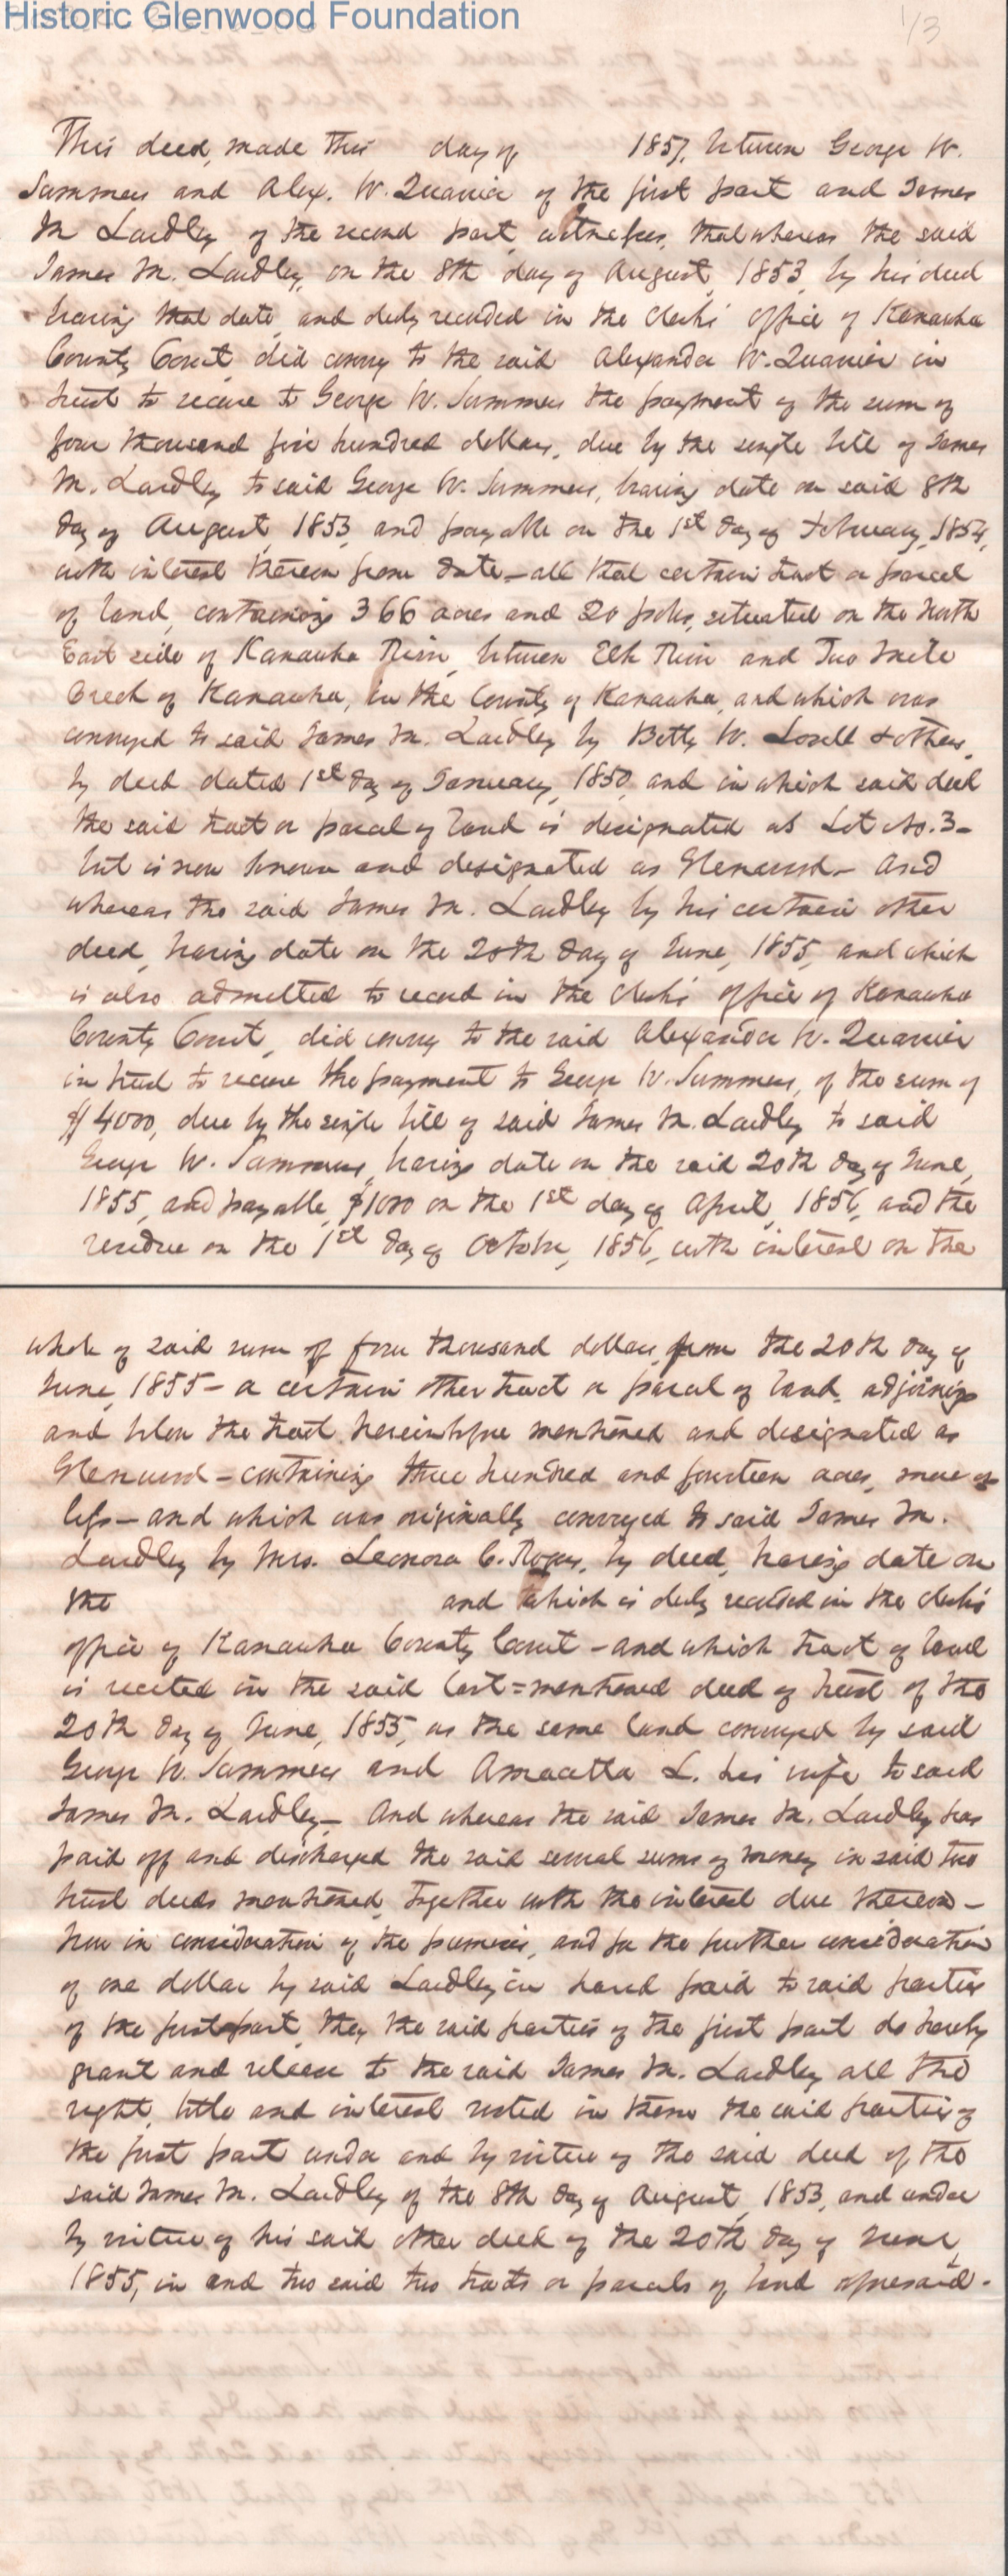 Historic Glenwood Foundation
1/3
This deed, made this day of 1857, between George W.
Summers and Alex. W. Quarrier of the first part and James
M Laidley of the second part, witnesses, that whereas the said
James M. Laidley, on the 8th day of August, 1853, by his deed
bearing that date, and duly recorded in the clerk's office of Kanawha
County Court, did convey to the said Alexander W. Quarrier in
trust to secure to George W. Summers the payment of the sum of
four thousand five hundred dollars, due by the single bill of James
M. Laidley to said George W. Summers, bearing date on said 8th
day of August, 1853, and payable on the 1st day of February, 1854,
with interest thereon from date - all that certain tract or parcel
of land, containing 366 acres and 20 poles, situated on the North
East side of Kanawha River, between Elk River and Two Mile
Creek of Kanawha, in the County of Kanawha, and which was
conveyed to said James M. Laidley by Betty W. Lovell & others,
by deed dated 1st day of January, 1850, and in which said deed
the said tract or parcel of land is designated as Lot No. 3 -
but is now known and designated as Glenwood - And
whereas the said James M. Laidley by his certain other
deed, bearing date on the 20th day of June, 1855, and which
is also admitted to record in the clerk's office of Kanawha
County Court, did convey to the said Alexander W. Quarrier
in trust to secure the payment to George W. Summers, of the sum of
$4000, due by the single bill of said James M. Laidley to said
George W. Summers, bearing date on the said 20th day of June,
1855, and payable, $1000 on the 1st day of April, 1856, and the
residue on the 1st day of October, 1856, with interest on the
whole of said sum of four thousand dollars, from the 20th day of
June, 1855 - a certain other tract or parcel of land, adjoining
and below the tract hereinbefore mentioned and designated as
Glenwood - containing three hundred and fourteen acres, more or
less - and which was originally conveyed to said James M.
Laidley by Mrs. Leonora C. Rogers, by deed, bearing date on
the and which is duly recorded in the clerk's
office of Kanawha County Court - and which tract of land
is recited in the said last=mentioned deed of trust of the
20th day of June, 1855, as the same land conveyed by said
George W. Summers and Amacetta L. his wife to said
James M. Laidley - And whereas the said James M. Laidley has
paid off and discharged the said several sums of money in said two
trust deeds mentioned, together with the interest due thereon -
Now in consideration of the premises, and for the further consideration
of one dollar by said Laidley in hand paid to said parties
of the first part, they the said parties of the first part do hereby
grant and release to the said James M. Laidley all the
right, title and interest vested in them the said parties of
the first part under and by virtue of the said deed of the
said James M. Laidley of the 8th day of August, 1853, and under
by virtue of his said other deed of the 20th day of June,
1855, in and two said two tracts or parcels of land aforesaid.